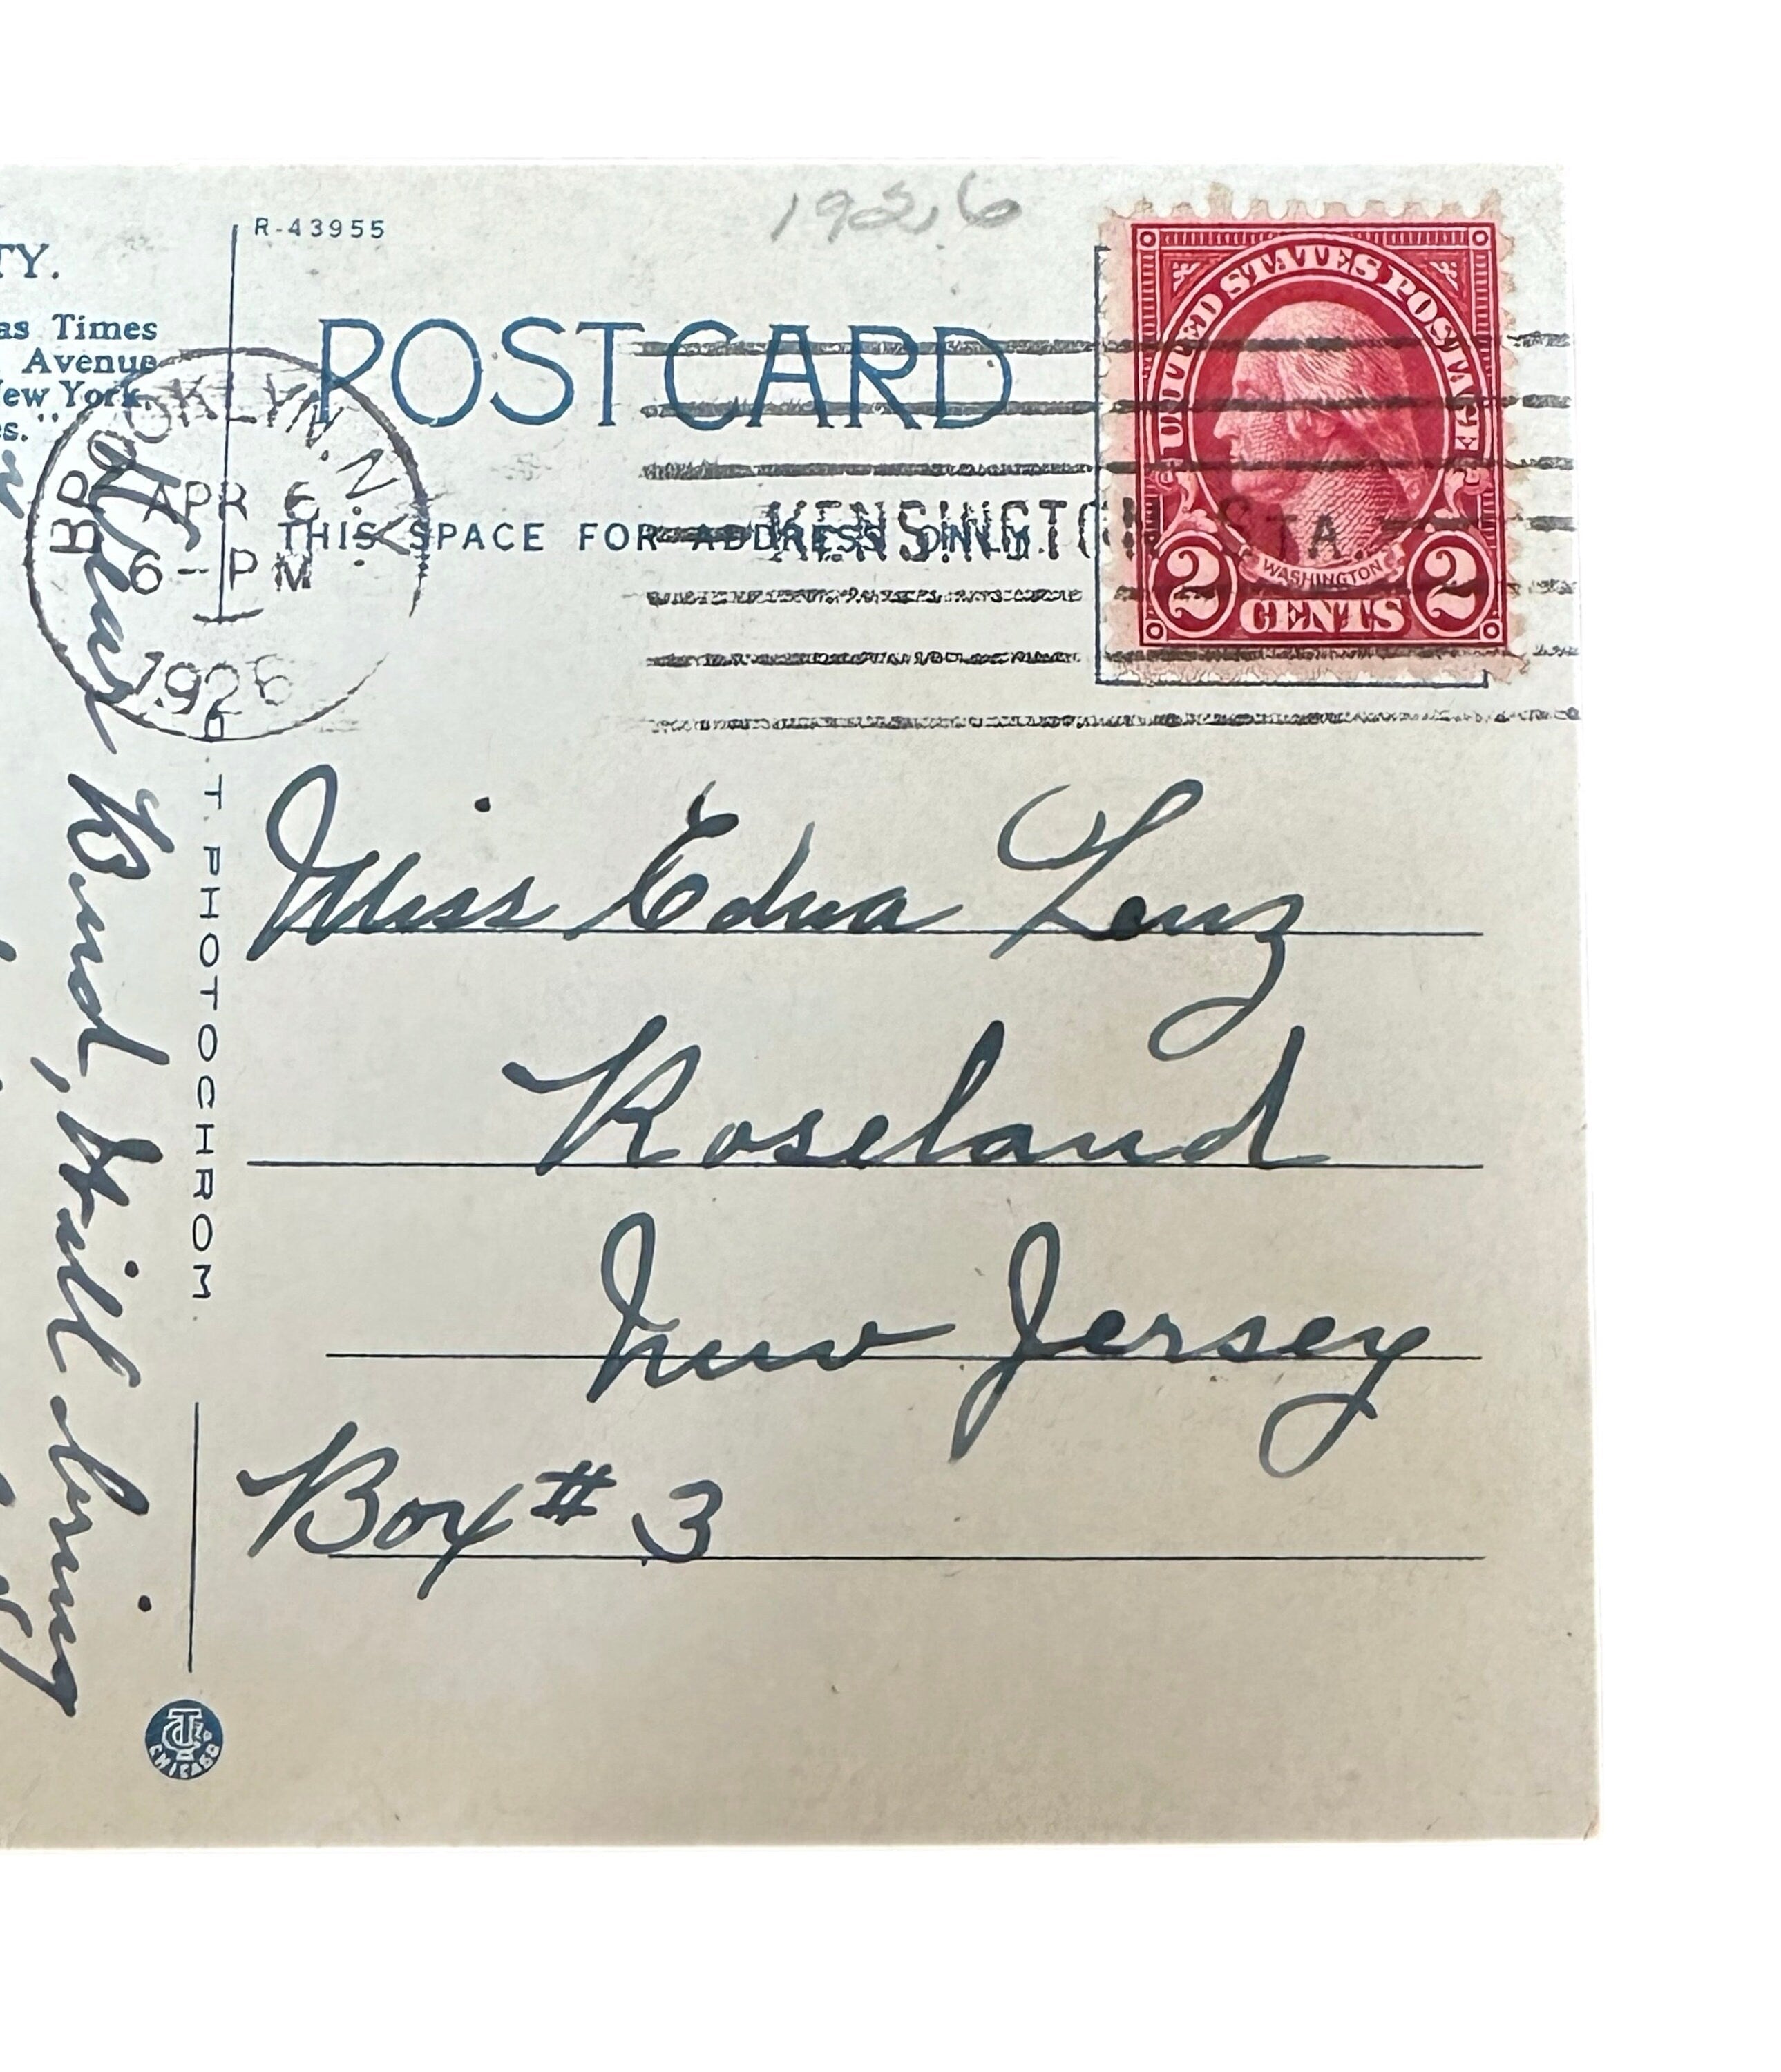 1926
R-43955
TY.
as Times
Avenue
New York.
es."
POSTCARD
THIS SPACE FOR ADDRESS ONLY.
BROOKLYN, N.Y.
APR 6
6-PM
1926
KENSINGTON STA.
UNITED STATES POSTAGE
WASHINGTON
2 CENTS 2
Dear
Bud, Still
T PHOTOCHROM
Miss Edna Lenz
Roseland
New Jersey
Box # 3
CHICAGO